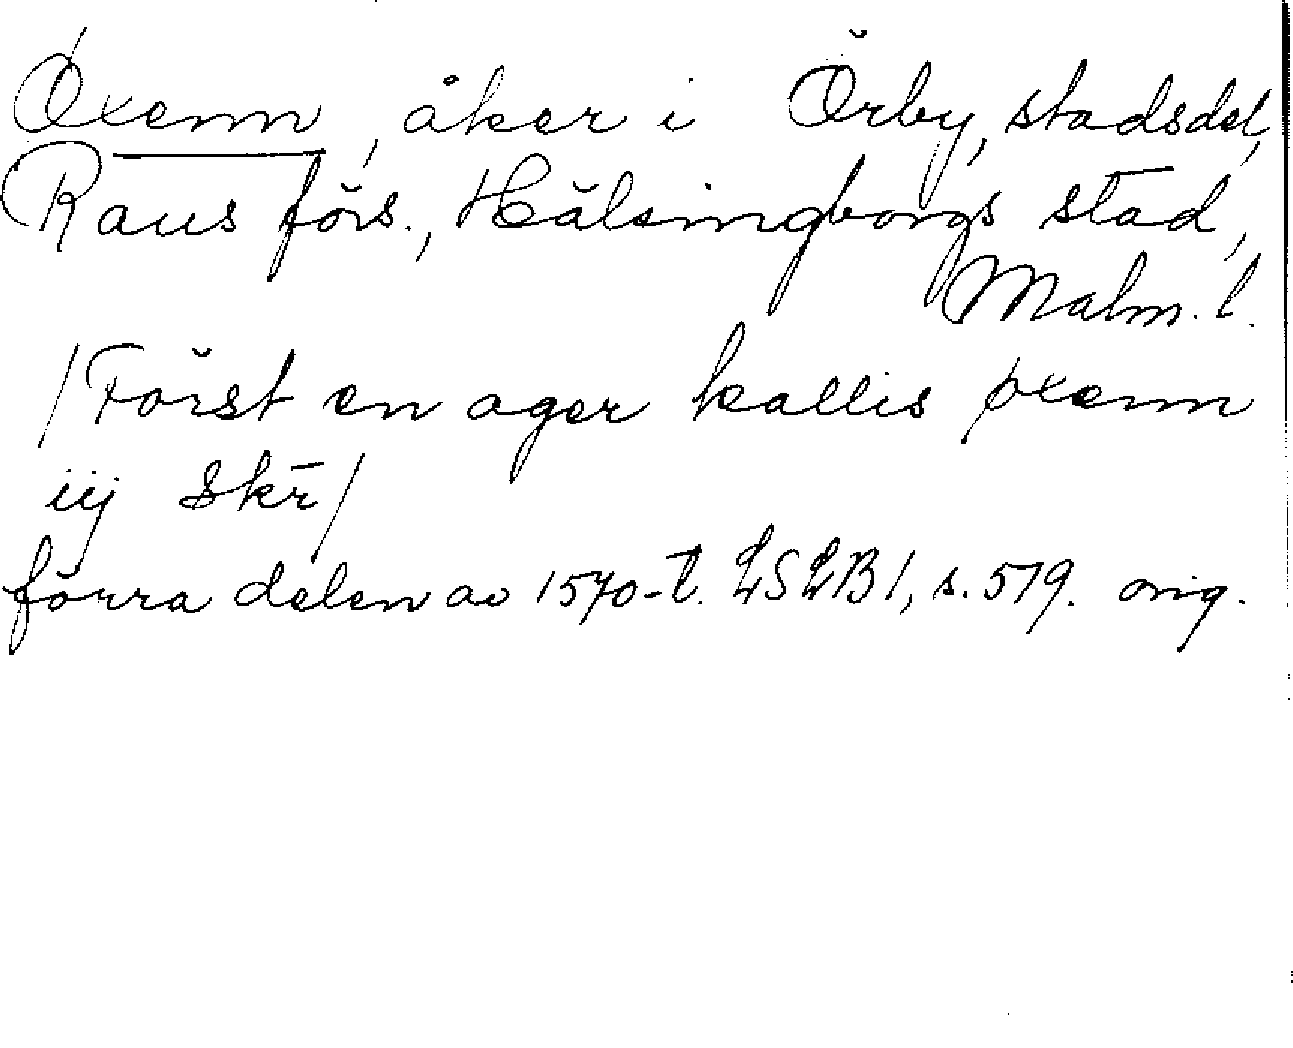 Øxenn, åker i Örby, stadsdel,
Raus förs., Hälsingborgs stad,
Malm. l.
/Först en ager kallis øxenn
iij skr̄/
förra delen av 1570-t. LSLB 1, s. 579. orig.